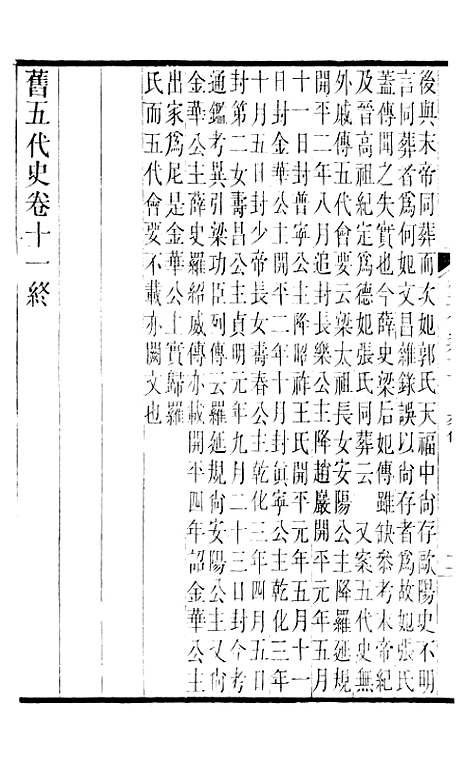 後與末帝同葬而次妃郭氏天福中尚存歐陽史不明
言同葬者爲何妃文昌雜錄誤以尚存者爲故妃張氏
蓋傳聞之失實也今薛史梁后妃傳雖缺參考末帝紀
及晉高祖紀定爲德妃張氏同葬云　又案五代史無
外戚傳五代會要云梁太祖長女安陽公主降羅延規
開平二年八月追封長樂公主降趙巖開平元年五月
十一日封普寧公主降昭祚王氏開平元年五月十一
日封金華公主開平二年十月封眞寧公主乾化三年
十月五日封少帝長女壽春公主乾化三年四月五日
封第二女壽昌公主貞明元年九月二十三日封今考
通鑑考異引梁功臣列傳云羅延規尚安陽公主又尚
金華公主薛史羅紹威傳亦載開平四年詔金華公主
出家爲尼是金華公主實歸羅
氏而五代會要不載亦闕文也
舊五代史卷十一終